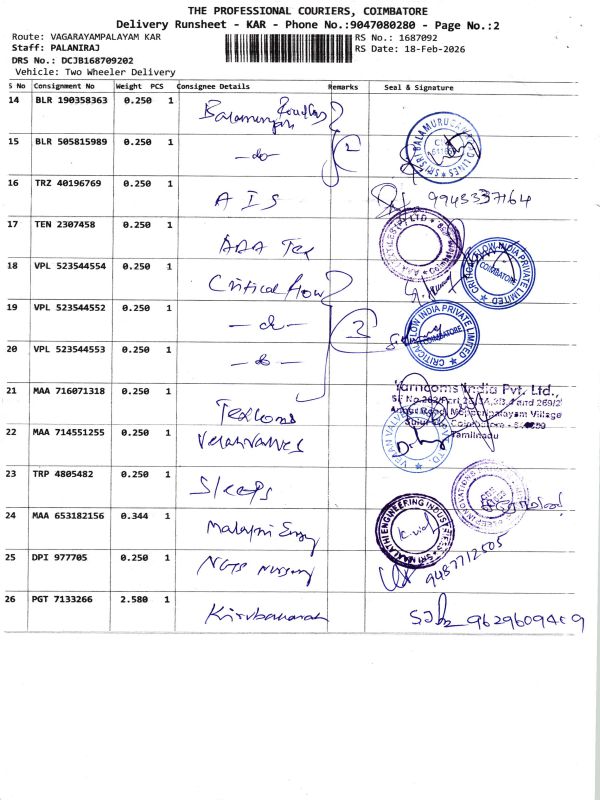 THE PROFESSIONAL COURIERS, COIMBATORE
Delivery Runsheet - KAR - Phone No.:9047080280 - Page No.:2
Route: VAGARAYAMPALAYAM KAR RS No.: 1687092
Staff: PALANIRAJ RS Date: 18-Feb-2026
DRS No.: DCJB168709202
Vehicle: Two Wheeler Delivery
S No Consignment No Weight PCS Consignee Details Remarks Seal & Signature
14 BLR 190358363 0.250 1 Balamurugan
15 BLR 505815989 0.250 1 -do- 2
16 TRZ 40196769 0.250 1 AIS 9943337164
17 TEN 2307458 0.250 1 AAA Tex
18 VPL 523544554 0.250 1 Critical flow CRITICAL FLOW INDIA PRIVATE LIMITED COIMBATORE
19 VPL 523544552 0.250 1 -do- 3 CRITICAL FLOW INDIA PRIVATE LIMITED COIMBATORE
20 VPL 523544553 0.250 1 -do-
21 MAA 716071318 0.250 1 Texcoms Yarncoms India Pvt. Ltd.,
Village
Coimbatore
Tamilnadu
22 MAA 714551255 0.250 1 Velan Valves
23 TRP 4805482 0.250 1 Sleeps
24 MAA 653182156 0.344 1 Malathi Engg SRI MAALATHI ENGINEERING INDUSTRIES
25 DPI 977705 0.250 1 NGTS Nursery 9487712505
26 PGT 7133266 2.580 1 Kirubakaran 9629609409